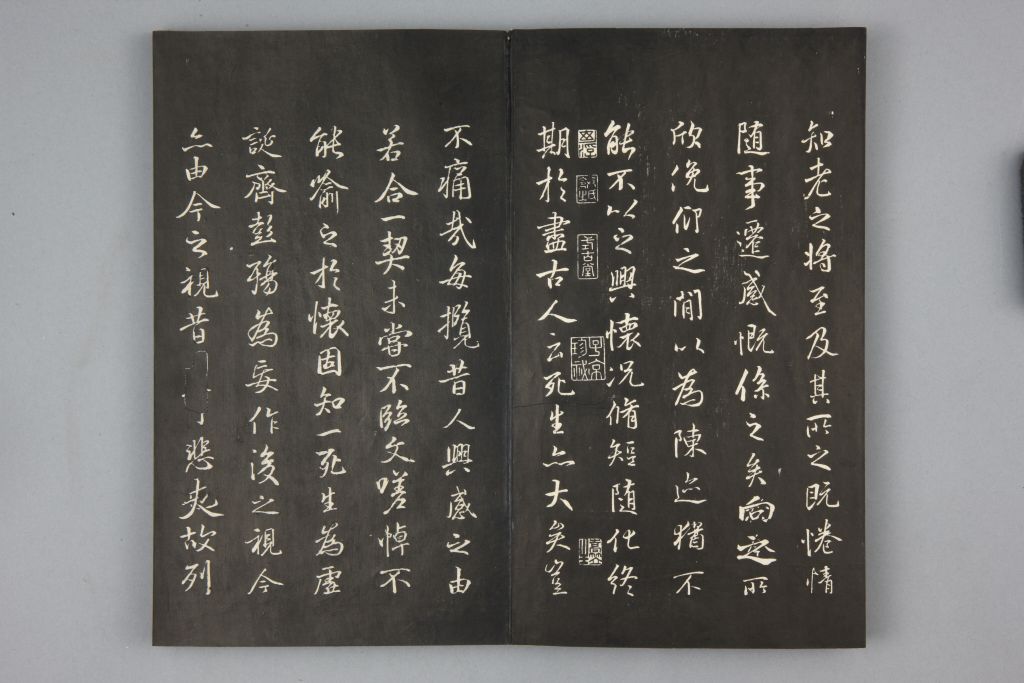 知老之将至及其所之既惓情
随事遷感慨係之矣向之所
欣俛仰之閒以為陳迹猶不
能不以之興懷況脩短随化終
式古堂
子京珍祕
期於盡古人云死生亦大矣豈
不痛哉每攬昔人興感之由
若合一契未嘗不臨文嗟悼不
能喻之於懷固知一死生為虛
誕齊彭殤為妄作後之視今
亦由今之視昔悲夫故列